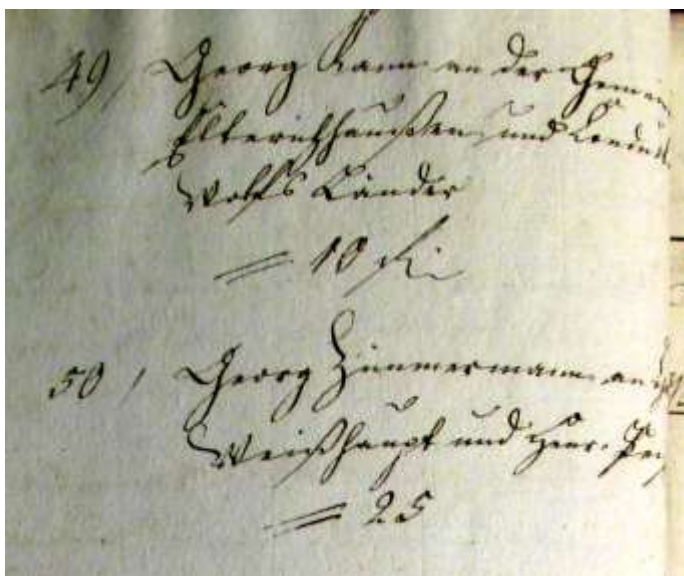 49, Georg Kann an der Gemein
Elberichhaußen und Conrad
Wolfs Länder
= 10
50, Georg Zimmermann an
Weißhaupt und Henr.
= 25